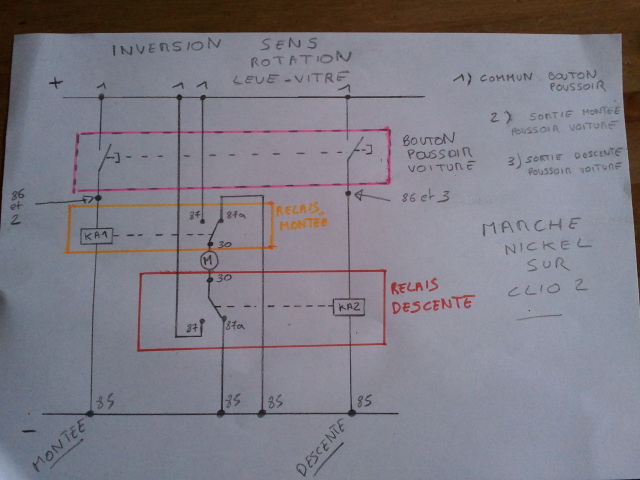 INVERSION SENS
ROTATION
LEVE-VITRE
+
1
1
1
1
1) COMMUN BOUTON
POUSSOIR
2) SORTIE MONTEE
POUSSOIR VOITURE
3) SORTIE DESCENTE
POUSSOIR VOITURE
BOUTON
POUSSOIR
VOITURE
86
et
2
86 et 3
87
87a
RELAIS
MONTEE
KA1
30
M
30
RELAIS
DESCENTE
KA2
87
87a
MARCHE
NICKEL
SUR
CLIO 2
-
85
85
85
85
MONTEE
DESCENTE